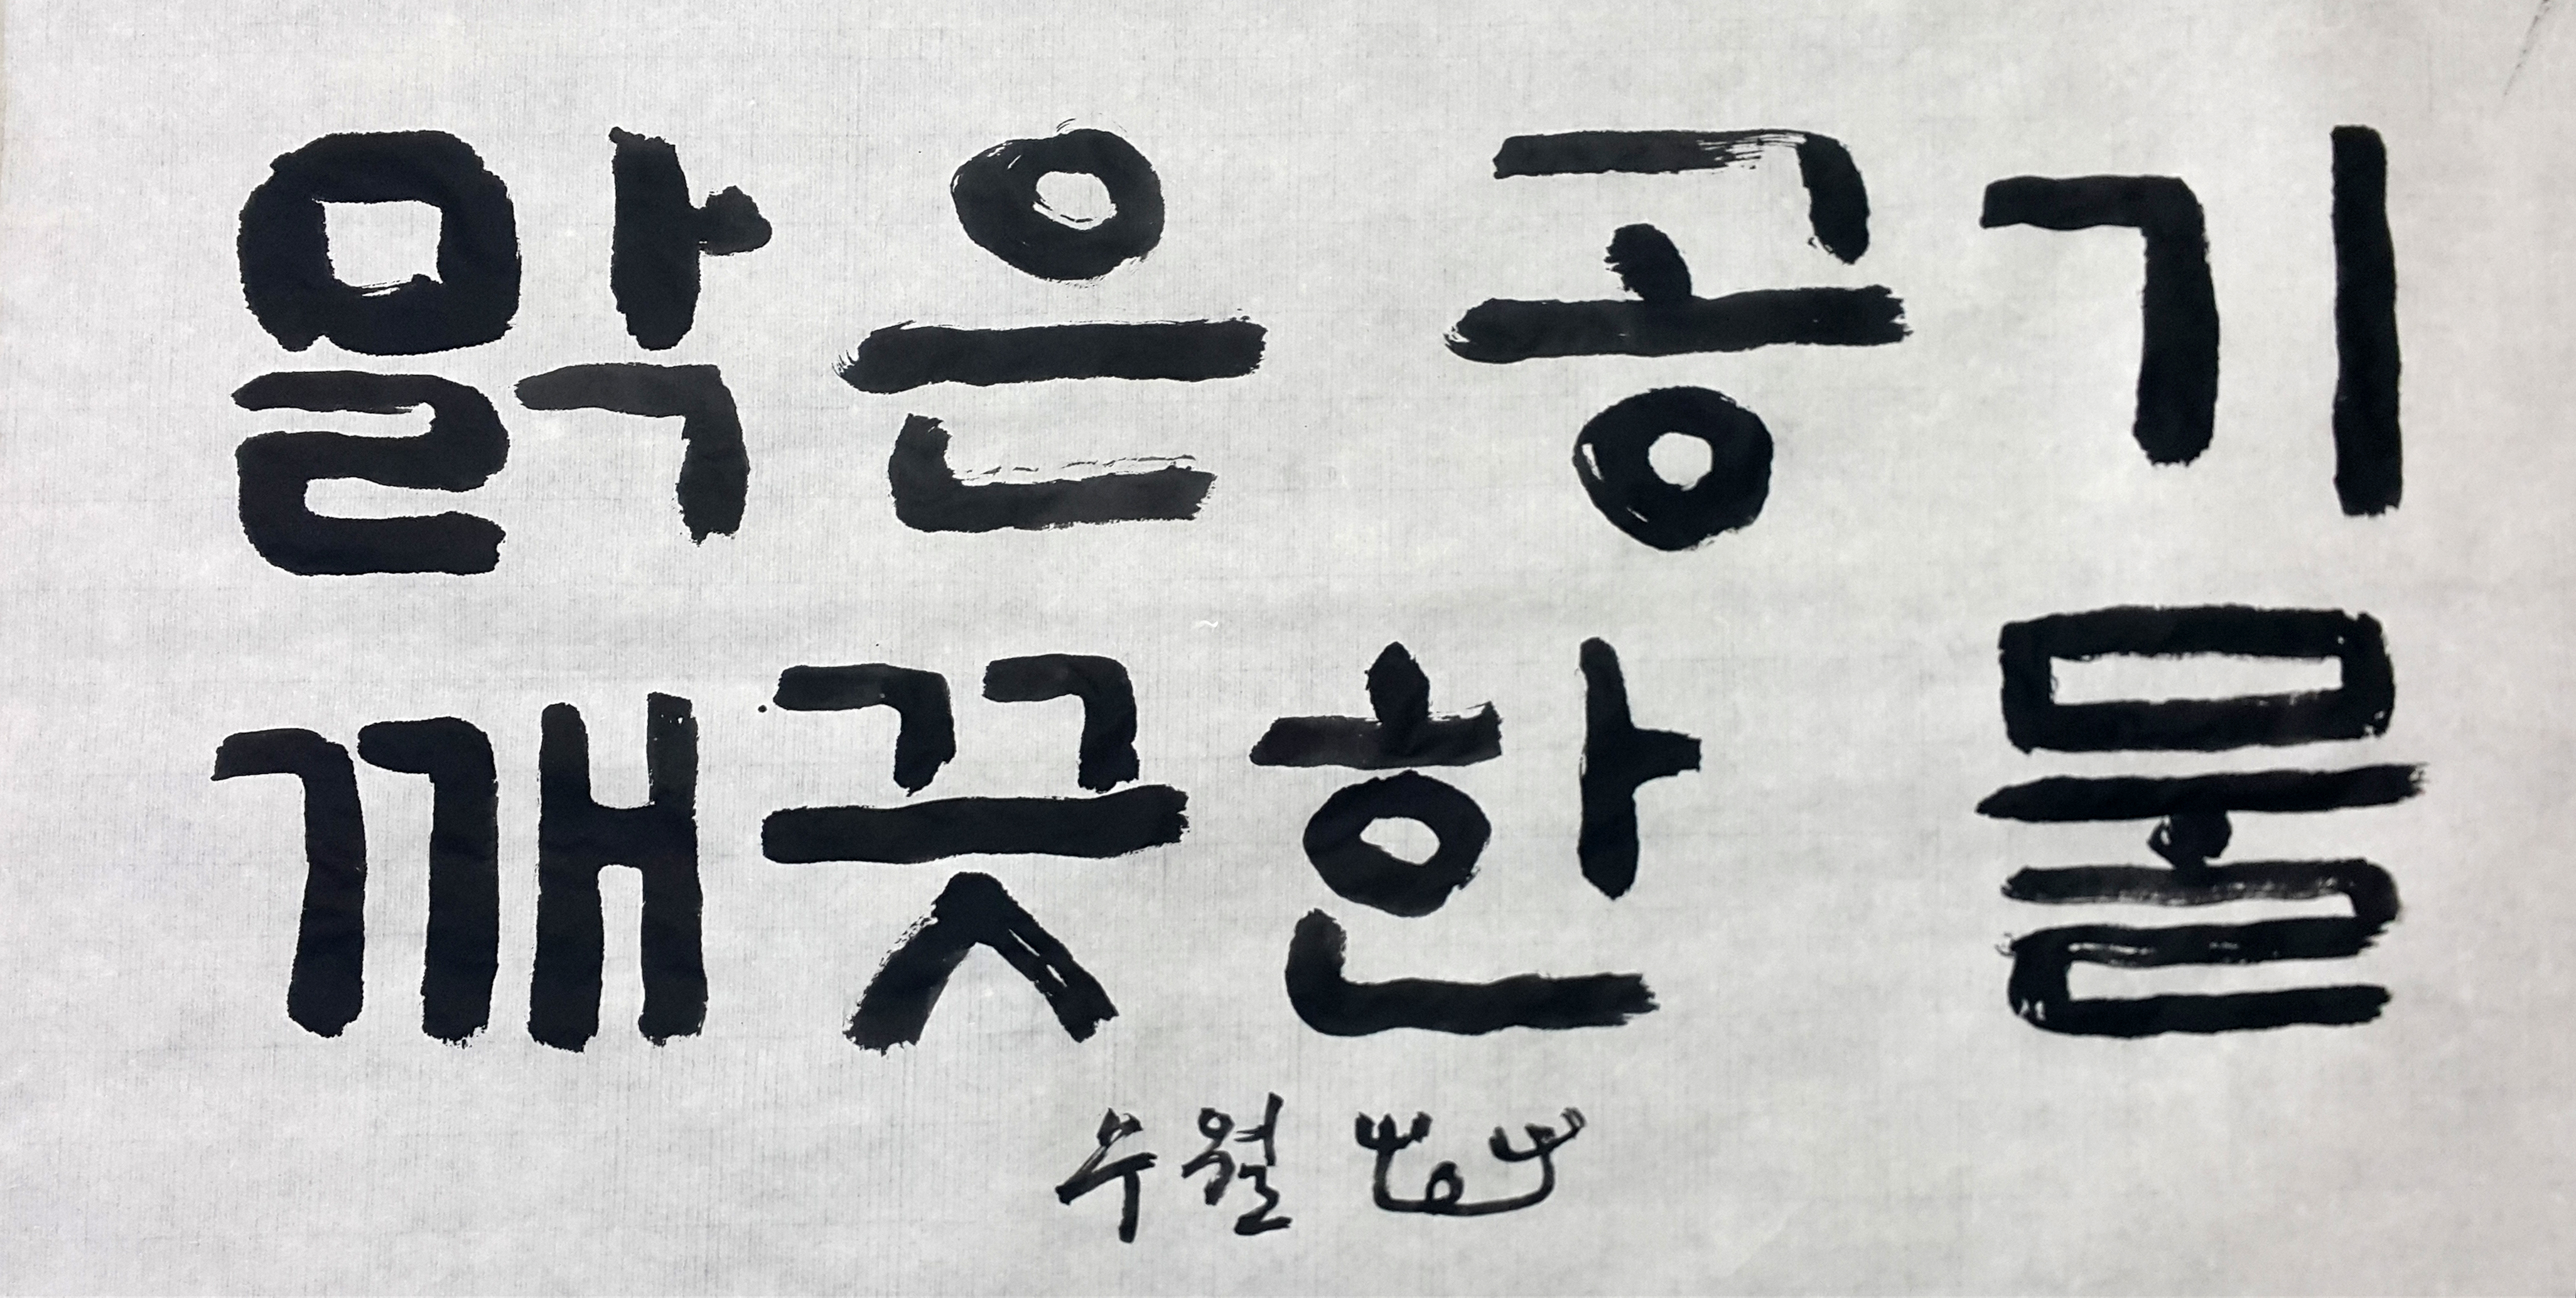 맑은 공기
깨끗한 물
수월